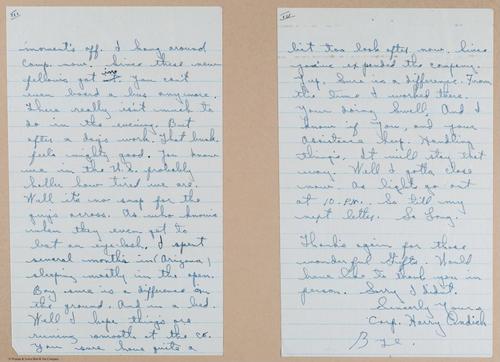 moment's off. I hang around
Camp now. Since these new
fellows got in. You can't
even board a bus anymore.
There really isn't much to
do in the evening. But
after a days work. That bunk
feels mighty good. You know
we in the U.S. probably
holler how tired we are.
Well it's no snap for the
guys across. As who knows
when they even get to
bat an eyelash. I spent
several months in (Arizona)
sleeping mostly in the open.
Boy sure is a difference on
the ground. And in a bed.
Well I hope things are
running smooth at the co.
You sure have quite a
bit too look after now. Since
you've expanded the company
up. Sure is a difference. From
the time I worked there.
Your doing swell. And I
know if you, and your
Assistance keep. Handling
things. It will stay that
way. Well I gotta close
now. As lights go out
at 10. P.M. So till my
next letter. So Long.
Thanks again for those
wonderful gifts. Would
have like to thank you in
person. Sorry I didn't.
Sincerly Yours
Corp. Harry
Bye.